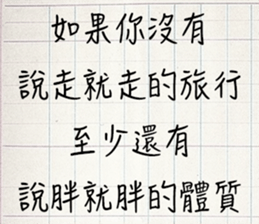 如果你沒有
說走就走的旅行
至少還有
說胖就胖的體質